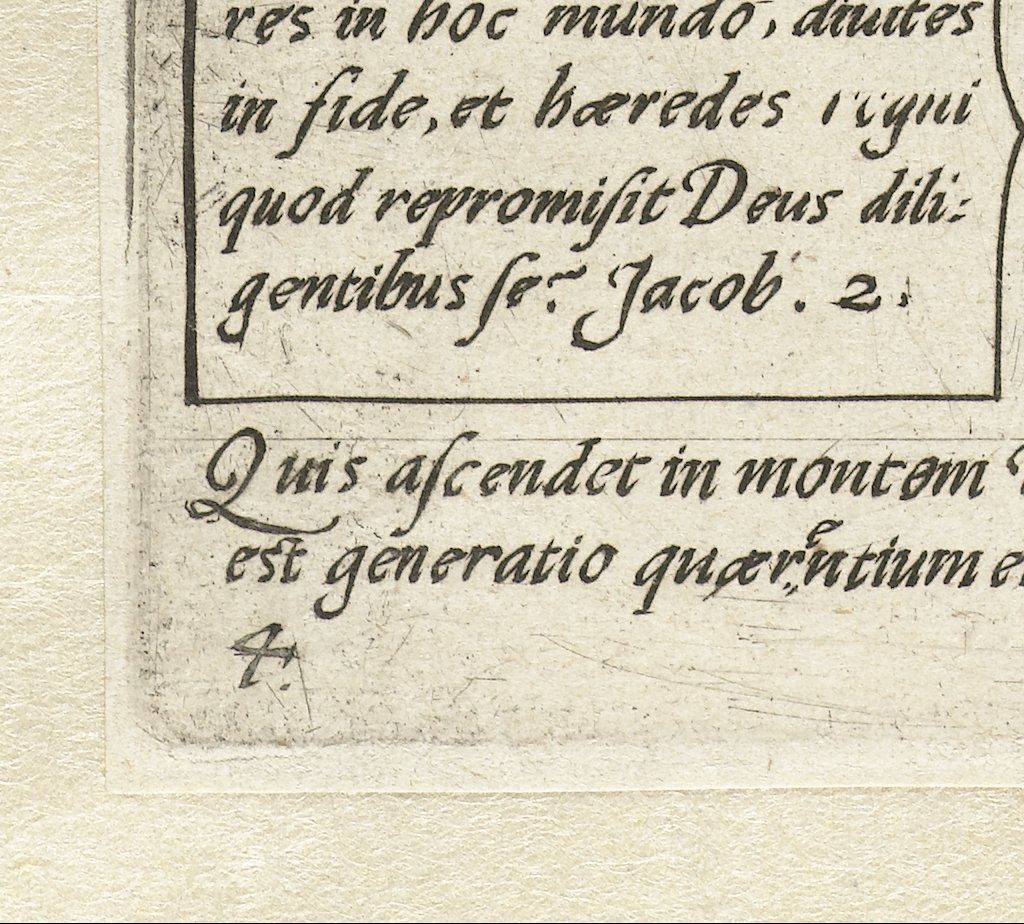 res in hoc mundo, diuites
in fide, et hæredes regni
quod repromiſit Deus dili:
gentibus ſe? Jacob. 2.
Quis aſcendet in montem
est generatio quærentium
4.